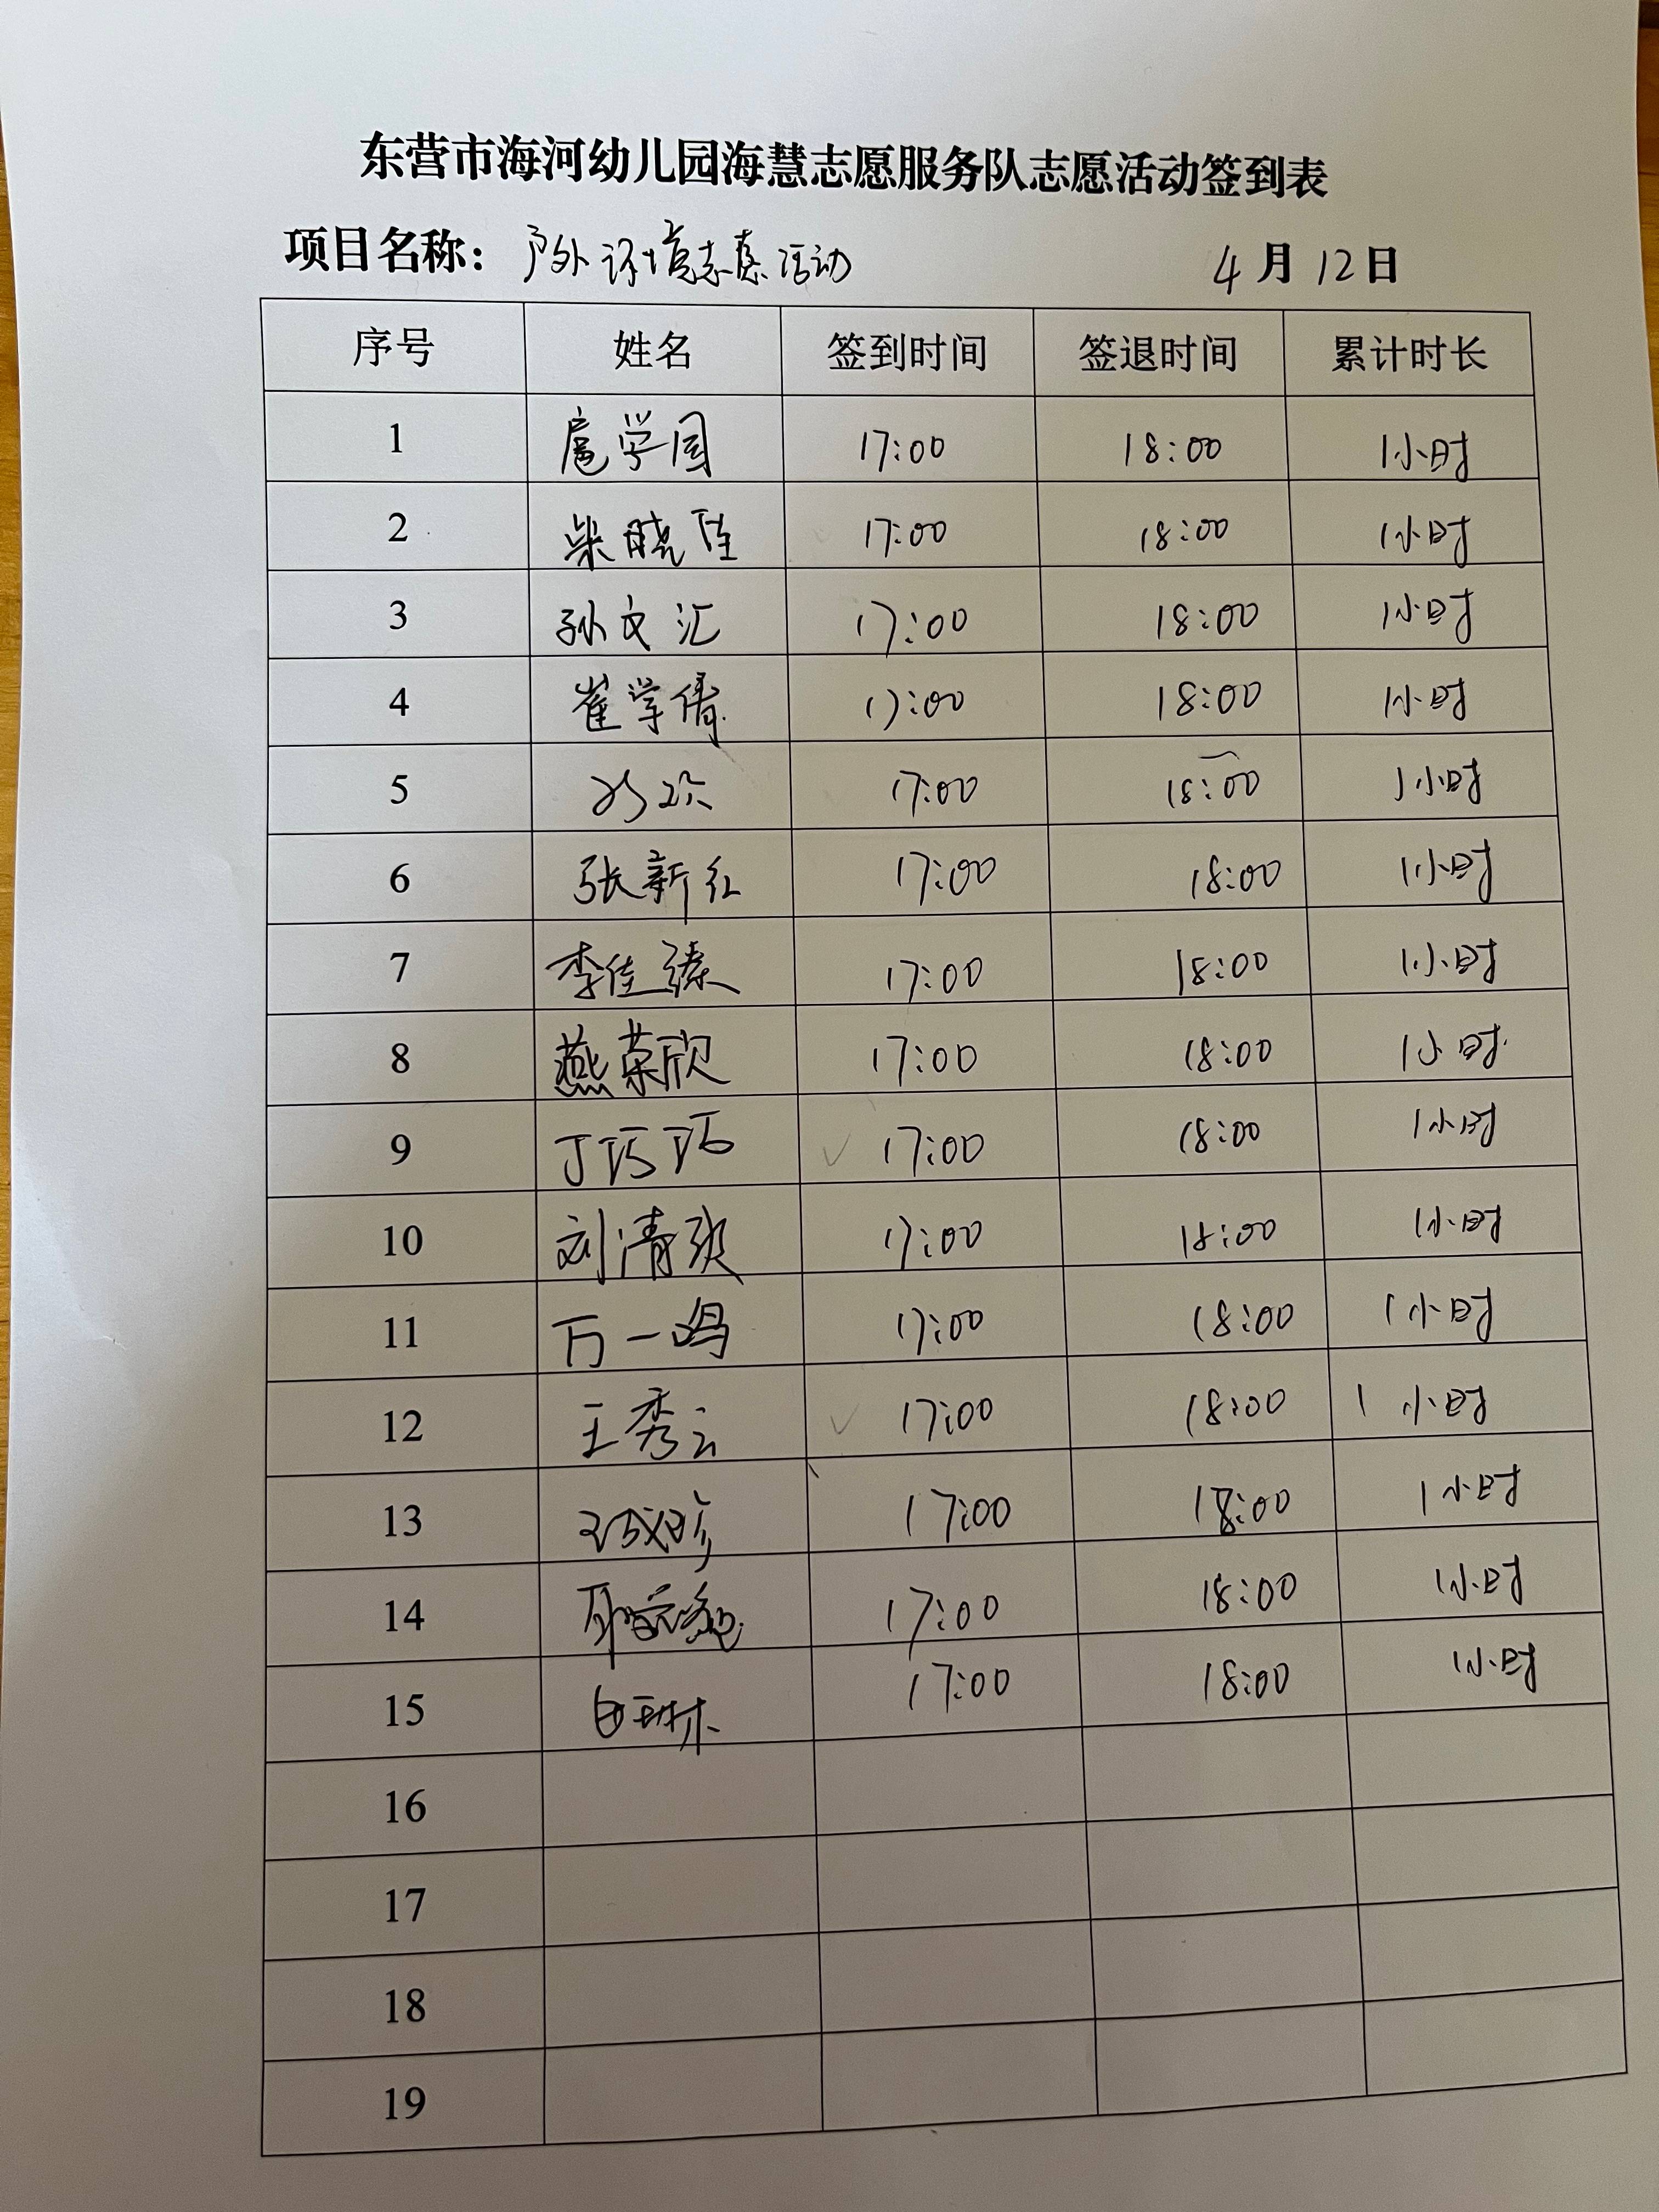 东营市海河幼儿园海慧志愿服务队志愿活动签到表
项目名称：户外环境志愿活动 4月12日
序号 姓名 签到时间 签退时间 累计时长
1 扈学国 17:00 18:00 1小时
2 梁晓佳 17:00 18:00 1小时
3 孙文汇 17:00 18:00 1小时
4 崔学倩 17:00 18:00 1小时
5 17:00 18:00 1小时
6 张新红 17:00 18:00 1小时
7 李佳臻 17:00 18:00 1小时
8 燕荣欣 17:00 18:00 1小时
9 丁巧巧 17:00 18:00 1小时
10 刘清 17:00 18:00 1小时
11 万一鸣 17:00 18:00 1小时
12 王秀云 17:00 18:00 1小时
13 17:00 18:00 1小时
14 17:00 18:00 1小时
15 白琳 17:00 18:00 1小时
16
17
18
19